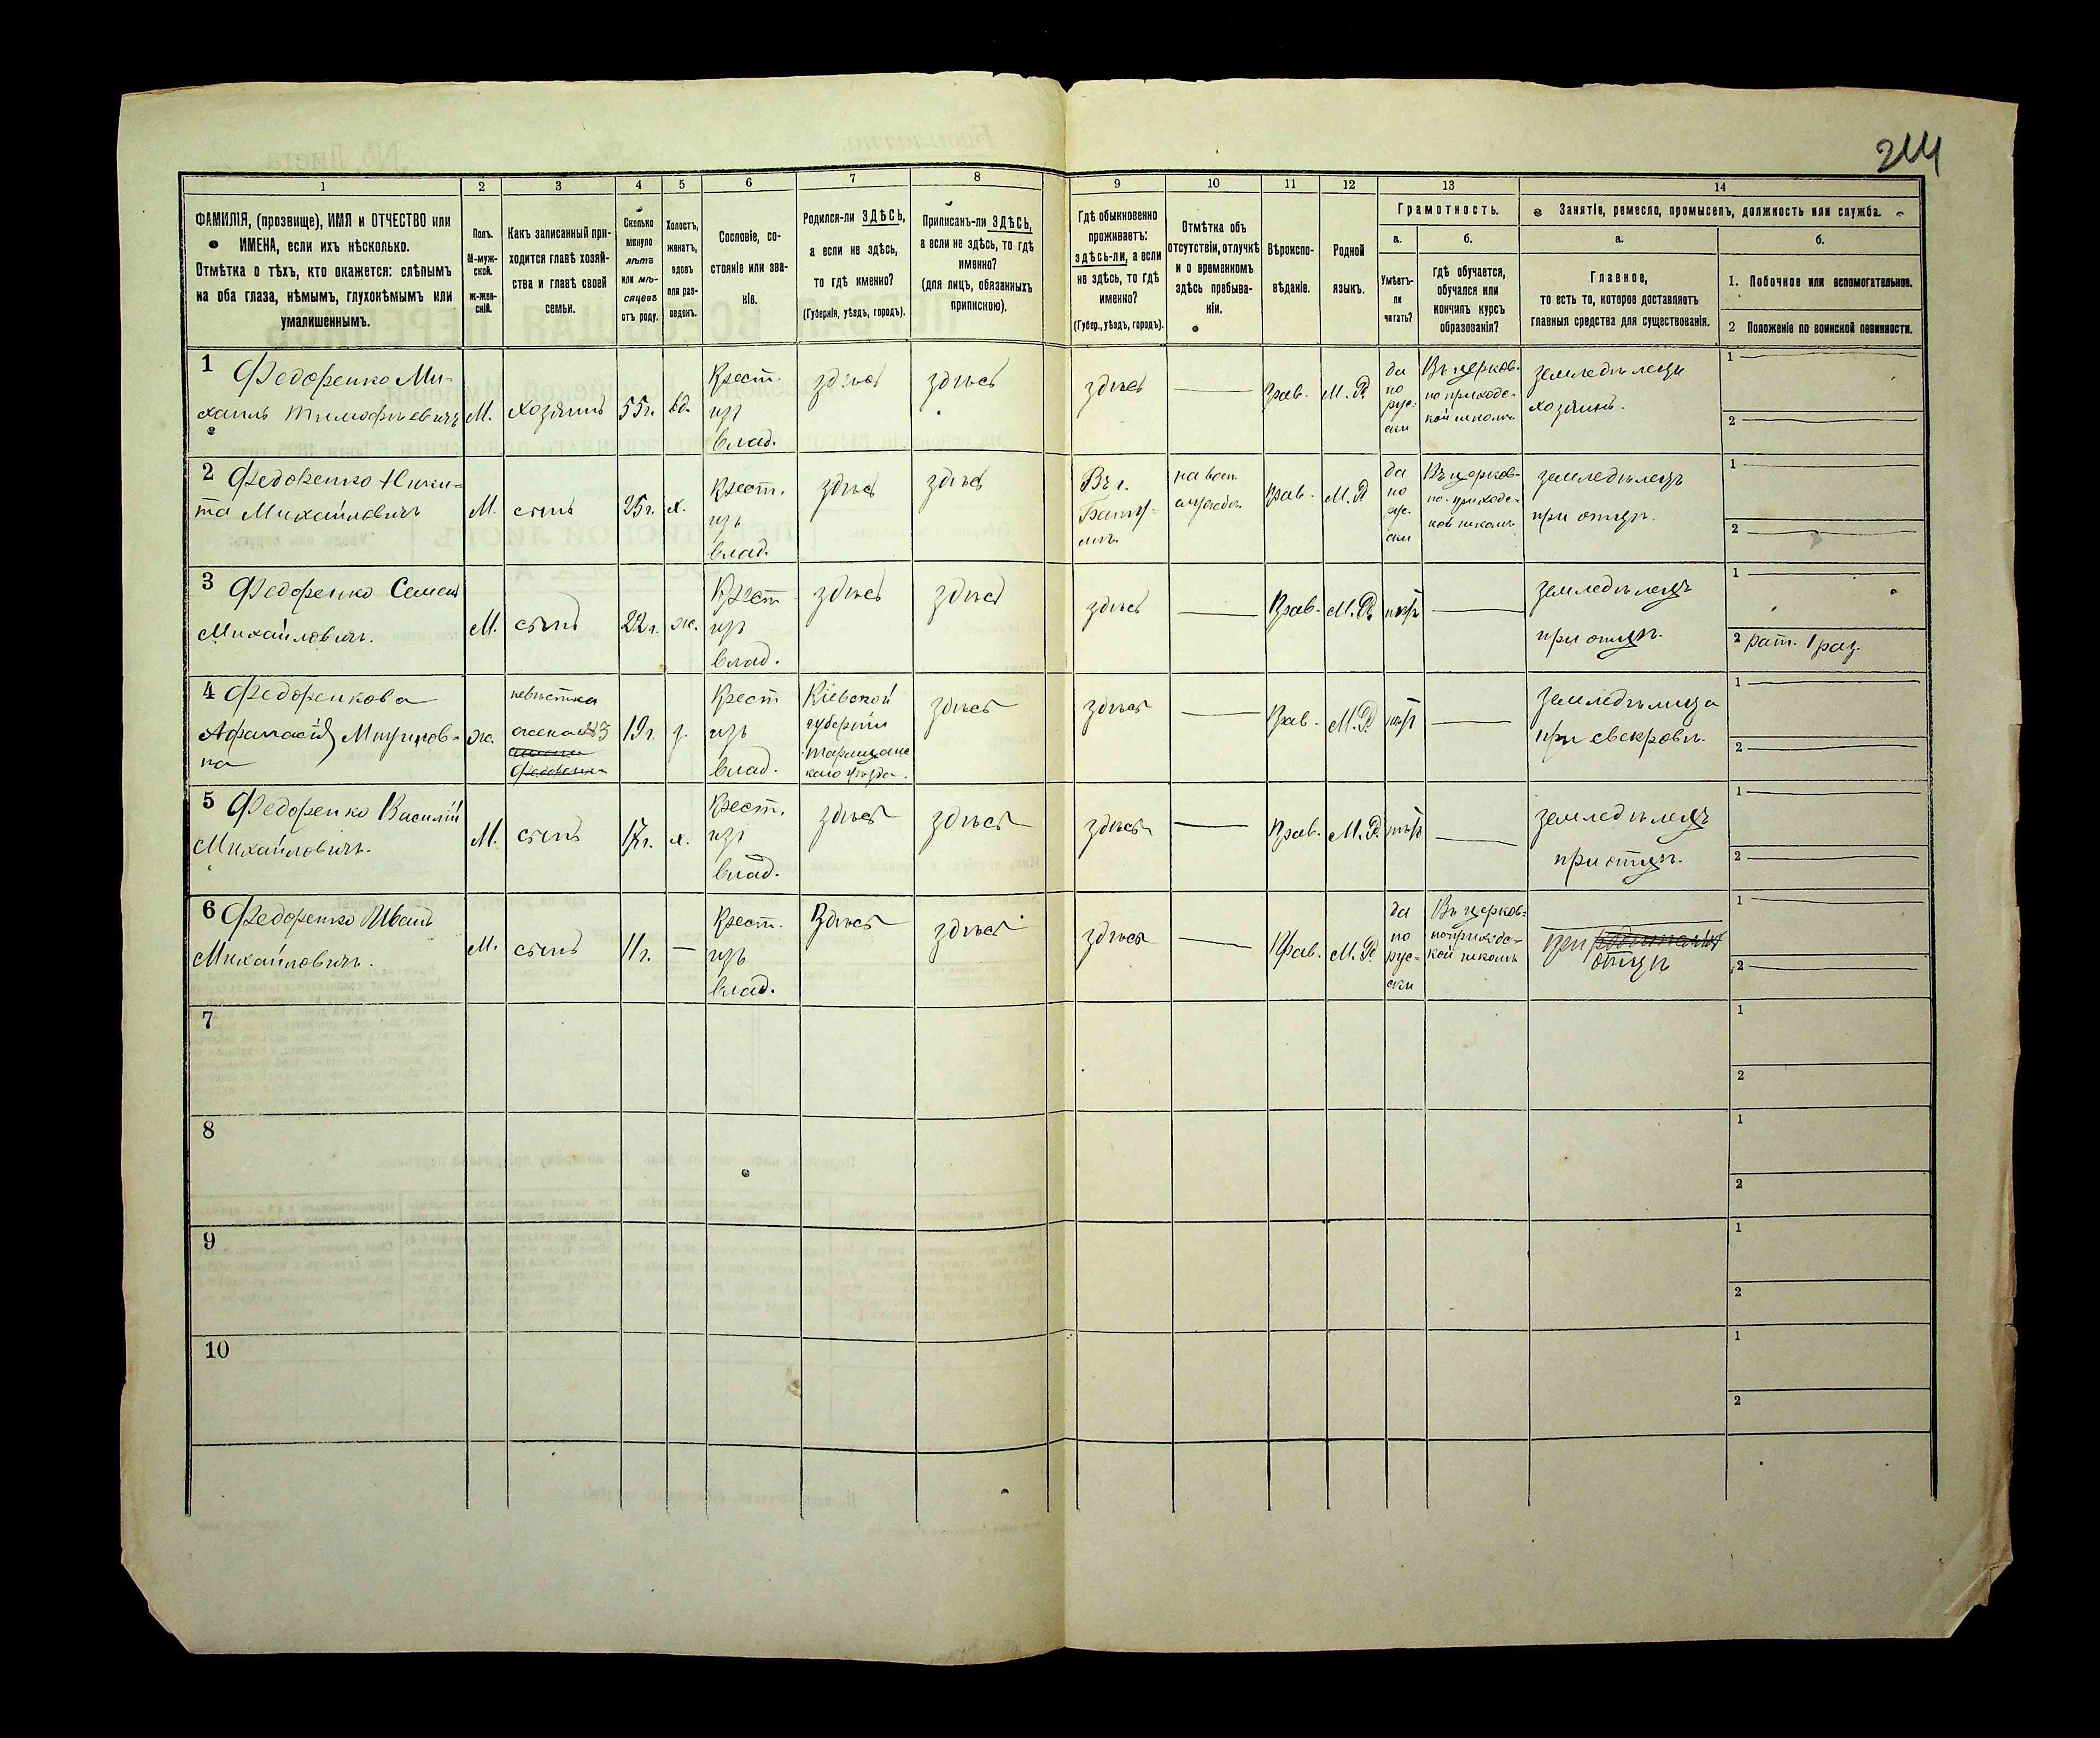 244
1 2 3 4 5 6 7 8 9 10 11 12 13 14
ФАМИЛІЯ, (прозвище), ИМЯ и ОТЧЕСТВО или
ИМЕНА, если ихъ нѣсколько.
Отмѣтка о тѣхъ, кто окажется: слѣпымъ
на оба глаза, нѣмымъ, глухонѣмымъ или
умалишеннымъ.
Полъ.
М-муж-
ской.
ж-жен-
скій.
Какъ записанный при-
ходится главѣ хозяй-
ства и главѣ своей
семьи.
Сколько
минуло
лѣтъ
или мѣ-
сяцевъ
отъ роду.
Холостъ,
женатъ,
вдовъ
или раз-
веденъ.
Сословіе, со-
стояніе или зва-
ніе.
Родился-ли ЗДѢСЬ,
а если не здѣсь,
то гдѣ именно?
(Губернія, уѣздъ, городъ).
Приписанъ-ли ЗДѢСЬ,
а если не здѣсь, то гдѣ
именно?
(для лицъ, обязанныхъ
припискою).
Гдѣ обыкновенно
проживаетъ:
здѣсь-ли, а если
не здѣсь, то гдѣ
именно?
(Губер., уѣздъ, городъ).
Отмѣтка объ
отсутствіи, отлучкѣ
и о временномъ
здѣсь пребыва-
ніи.
Вѣроиспо-
вѣданіе.
Родной
языкъ.
Грамотность.
а.
Умѣетъ-
ли
читать?
б.
гдѣ обучается,
обучался или
кончилъ курсъ
образованія?
Занятіе, ремесло, промыселъ, должность или служба.
а.
Главное,
то есть то, которое доставляетъ
главныя средства для существованія.
б.
1. Побочное или вспомогательное.
2 Положеніе по воинской повинности.
1 Федоренко Ми-
хаилъ Тимофѣевичъ
М.
хозяинъ
55 г.
вд.
Крест.
изъ
влад.
здѣсь
здѣсь
здѣсь
Прав.
М. Р.
да
по
рус-
ски
Въ церков-
но приходс-
кой школѣ
земледѣлецъ
хозяинъ.
1
2
2 Федоренко Ники-
та Михайловичъ
М.
сынъ
25 г.
х.
Крест.
изъ
влад.
здѣсь
здѣсь
Въ г.
на воен.
Прав.
М. Р.
да
по
рус-
ски
Въ церков-
но-приходс-
кой школѣ
земледѣлецъ
при отцѣ.
1
2
3 Федоренко Семенъ
Михайловичъ.
М.
сынъ
22 г.
ж.
Крест
изъ
влад.
здѣсь
здѣсь
здѣсь
Прав.
М. Р.
нѣтъ
земледѣлецъ
при отцѣ.
1
2 рат. 1 раз.
4 Федоренкова
Афанасія
на
ж.
невѣстка
жена №3
19 г.
з.
Крест
изъ
влад.
Кіевской
губерніи
Таращанс
каго уѣзда.
здѣсь
здѣсь
Прав.
М. Р.
нѣтъ
земледѣлица
при свекровѣ.
1
2
5 Федоренко Василій
Михайловичъ.
М.
сынъ
17 г.
х.
Крест.
изъ
влад.
здѣсь
здѣсь
здѣсь
Прав.
М. Р.
нѣтъ
земледѣлецъ
при отцѣ.
1
2
6 Федоренко Иванъ
Михайловичъ.
М.
сынъ
11 г.
Крест.
изъ
влад.
Здѣсь
здѣсь
здѣсь
Прав.
М. Р.
да
по
рус-
ски
Въ церков-
но приходс-
кой школѣ
при
отцѣ
1
2
7
1
2
8
1
2
9
1
2
10
1
2